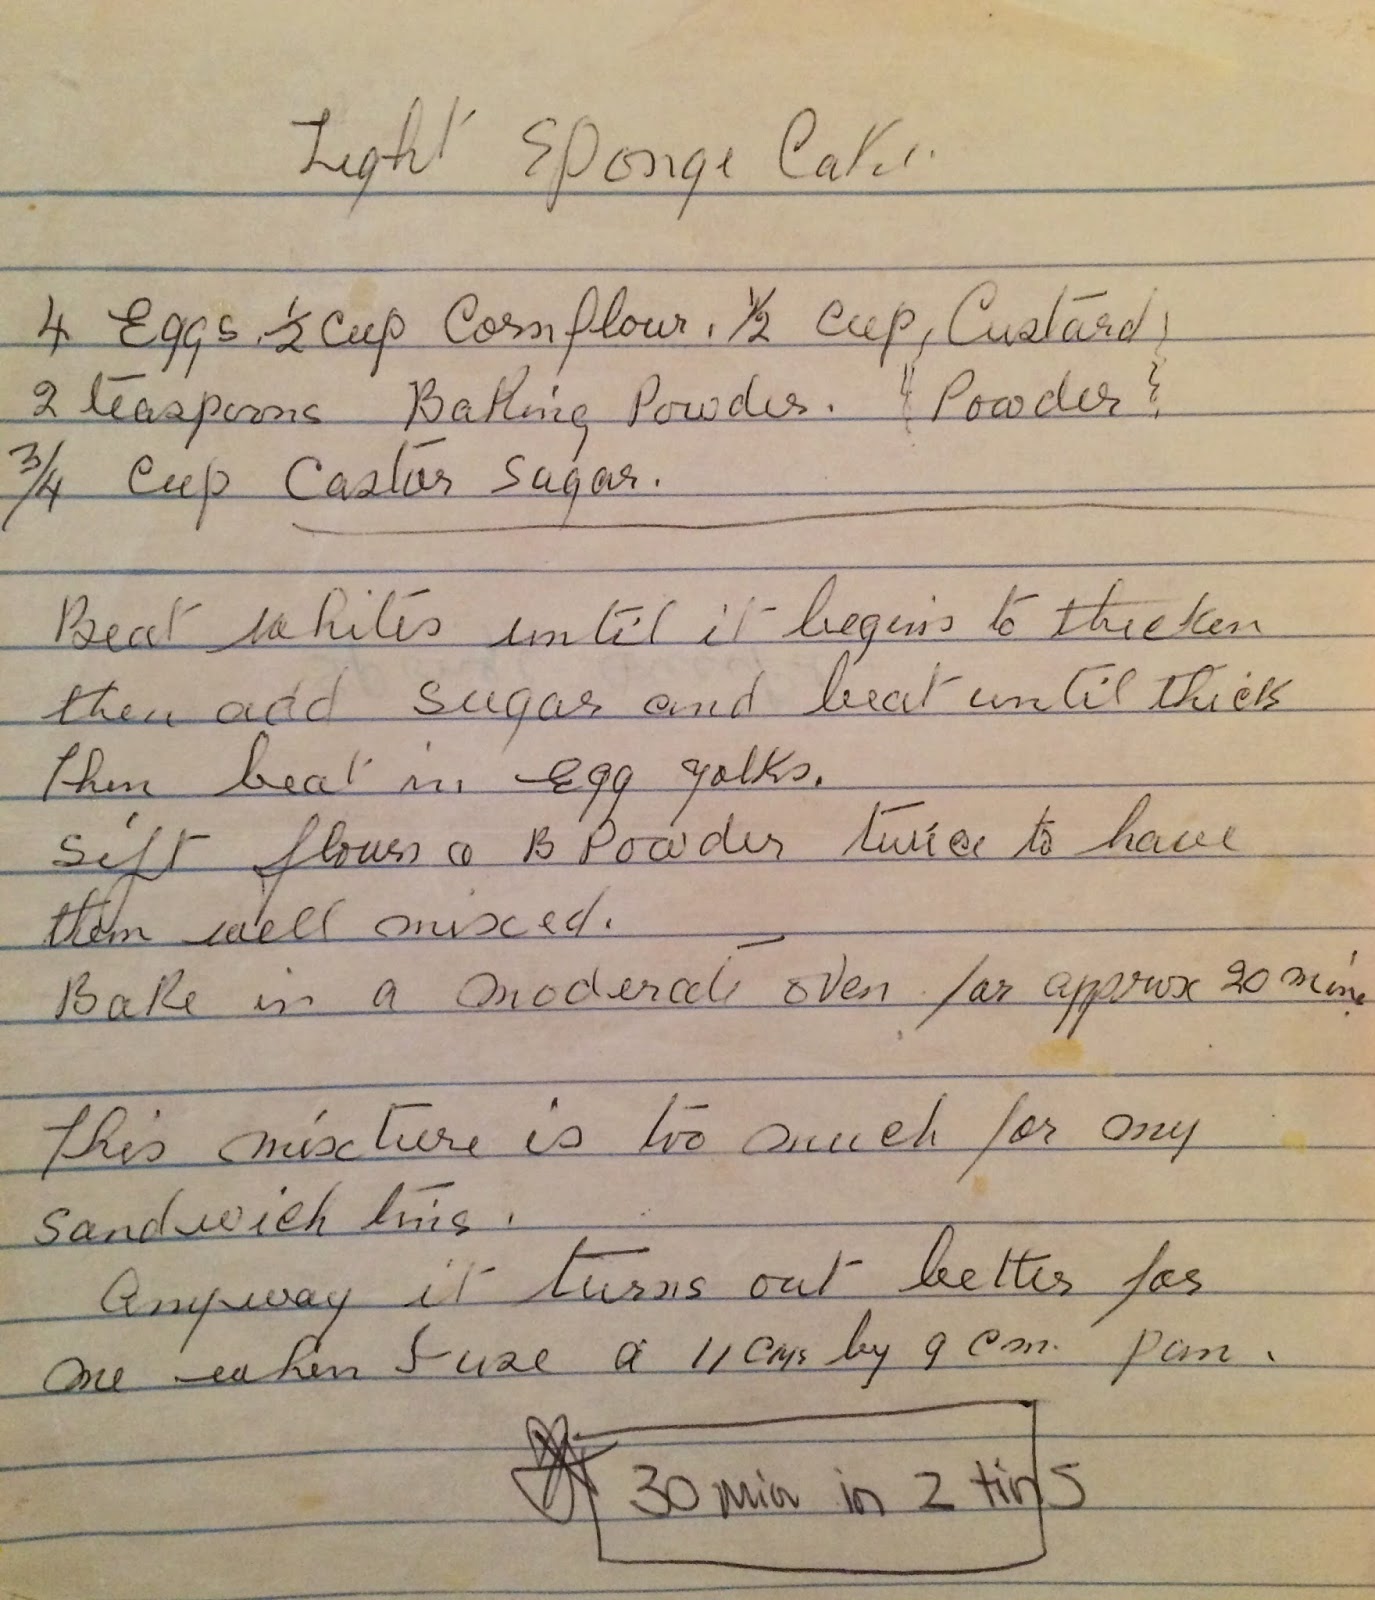 Light Sponge Cake.
4 Eggs. 1/2 cup Cornflour. 1/2 cup, Custard
2 teaspoons Baking Powder. " Powder
3/4 cup Castor Sugar.
Beat whites until it begins to thicken
then add sugar and beat until thick
Then beat in Egg yolks.
Sift flours & B Powder twice to have
them well mixed.
Bake in a moderate oven for approx 20 mins
This mixture is too much for my
sandwich tins.
Anyway it turns out better for
me when I use a 11 cms by 9 cm. pan.
30 min in 2 tins